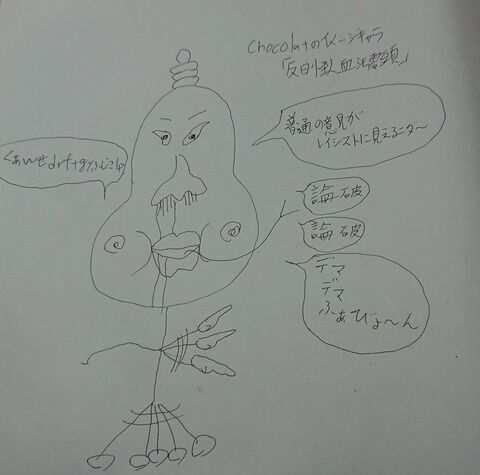 chocolatのイメージキャラ
普通の意見が
レイシストに見えるニダ〜
くぁwせdrftgyふじこlp
論破
論破
デマ
デマ
ふぁびょ〜ん